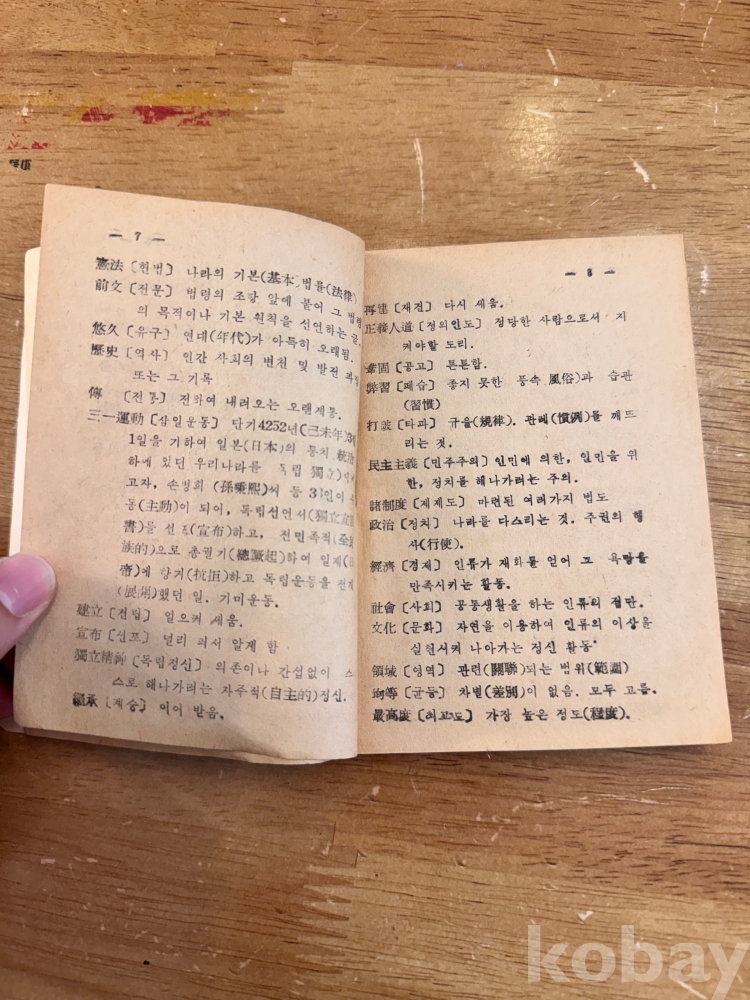 — 7 —
憲法 [헌법] 나라의 기본(基本)법률(法律)
前文 [전문] 법령의 조항 앞에 붙어 그 법령
의 목적이나 기본 원칙을 선언하는 글.
悠久 [유구] 연대(年代)가 아득히 오래됨.
歷史 [역사] 인간 사회의 변천 및 발전 과정
또는 그 기록
傳 [전통] 전하여 내려오는 오랜계통.
三一運動 [삼일운동] 단기4252년(己未年)3월
1일을 기하여 일본(日本)의 통치(統治)
하에 있던 우리나라를 독립(獨立)
고자, 손병희(孫秉熙)씨 등 33인이
동(主動)이 되어, 독립선언서(獨立宣言
書)를 선포(宣布)하고, 전민족적(全民
族的)으로 총궐기(總蹶起)하여 일제(日
帝)에 항거(抗拒)하고 독립운동을 전개
(展開)했던 일. 기미운동.
建立 [건립] 일으켜 세움.
宣布 [선포] 널리 펴서 알게 함
獨立精神 [독립정신] 의존이나 간섭없이 스
스로 해나가려는 자주적(自主的)정신.
繼承 [계승] 이어 받음.
— 8 —
再建 [재건] 다시 세움.
正義人道 [정의인도] 정당한 사람으로서 지
켜야할 도리.
鞏固 [공고] 튼튼함.
弊習 [폐습] 좋지 못한 풍속 風俗)과 습관
(習慣)
打破 [타파] 규율(規律). 관례(慣例)를 깨뜨
리는 것.
民主主義 [민주주의] 인민에 의한, 인민을 위
한, 정치를 해나가려는 주의.
諸制度 [제제도] 마련된 여러가지 법도
政治 [정치] 나라를 다스리는 것. 주권의 행
사(行使).
經濟 [경제] 인류가 재화를 얻어 그 욕망을
만족시키는 활동.
社會 [사회] 공동생활을 하는 인류의 집단.
文化 [문화] 자연을 이용하여 인류의 이상을
실현시켜 나아가는 정신 활동
領域 [영역] 관련(關聯)되는 범위(範圍)
均等 [균등] 차별(差別)이 없음. 모두 고름.
最高度 [최고도] 가장 높은 정도(程度).
kobay